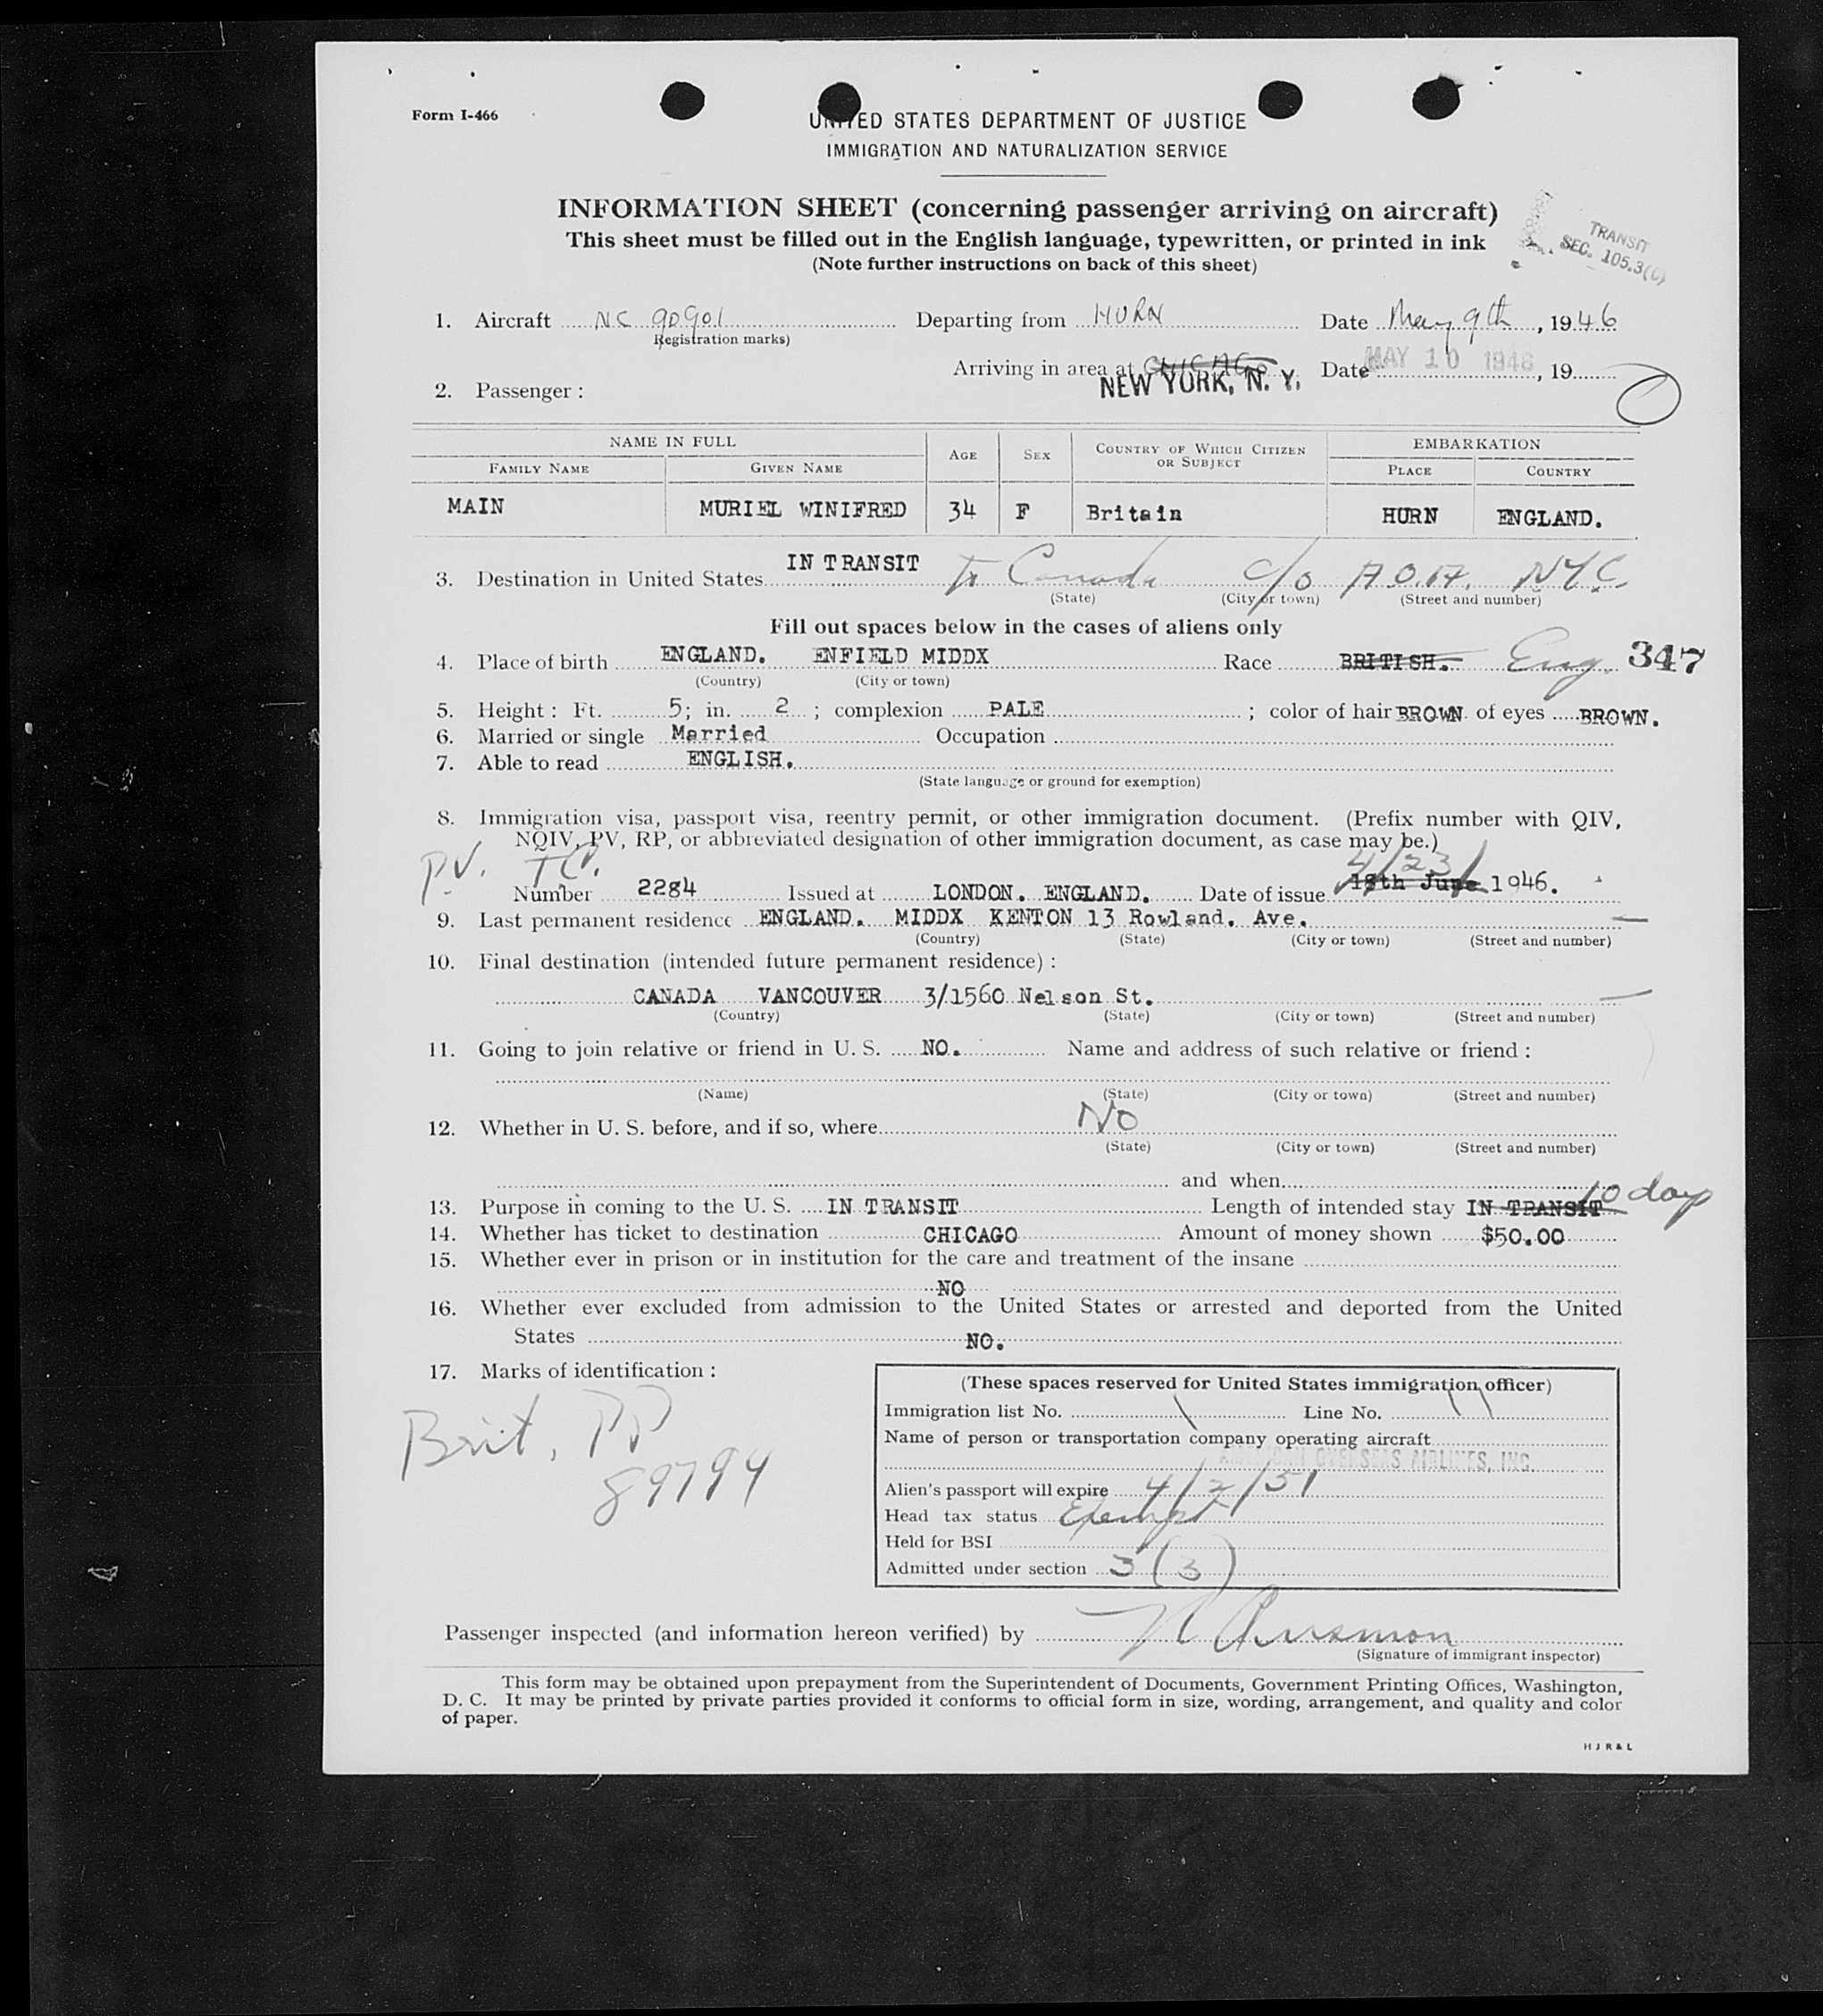 Form I-466
UNITED STATES DEPARTMENT OF JUSTICE
IMMIGRATION AND NATURALIZATION SERVICE
INFORMATION SHEET (concerning passenger arriving on aircraft)
This sheet must be filled out in the English language, typewritten, or printed in ink
(Note further instructions on back of this sheet)
TRANSIT
SEC. 105.3(C)
1. Aircraft NC 90901 Departing from HURN Date May 9th, 1946
(Registration marks)
Arriving in area at CHICAGO NEW YORK, N. Y. Date MAY 10 1946, 19
2. Passenger:
NAME IN FULL AGE SEX COUNTRY OF WHICH CITIZEN OR SUBJECT EMBARKATION
FAMILY NAME GIVEN NAME PLACE COUNTRY
MAIN MURIEL WINIFRED 34 F Britain HURN ENGLAND.
3. Destination in United States IN TRANSIT to Canada c/o A.O.A. NYC.
(State) (City or town) (Street and number)
Fill out spaces below in the cases of aliens only
4. Place of birth ENGLAND. ENFIELD MIDDX Race BRITISH. Eng. 347
(Country) (City or town)
5. Height: Ft. 5; in. 2; complexion PALE; color of hair BROWN of eyes BROWN.
6. Married or single Married Occupation
7. Able to read ENGLISH.
(State language or ground for exemption)
8. Immigration visa, passport visa, reentry permit, or other immigration document. (Prefix number with QIV,
NQIV, PV, RP, or abbreviated designation of other immigration document, as case may be.)
PV. TC. 4/23/
Number 2284 Issued at LONDON. ENGLAND. Date of issue 18th June 1946.
9. Last permanent residence ENGLAND. MIDDX KENTON 13 Rowland. Ave.
(Country) (State) (City or town) (Street and number)
10. Final destination (intended future permanent residence):
CANADA VANCOUVER 3/1560 Nelson St.
(Country) (State) (City or town) (Street and number)
11. Going to join relative or friend in U. S. NO. Name and address of such relative or friend:
(Name) (State) (City or town) (Street and number)
12. Whether in U. S. before, and if so, where No
(State) (City or town) (Street and number)
and when
13. Purpose in coming to the U. S. IN TRANSIT Length of intended stay IN TRANSIT 10 days
14. Whether has ticket to destination CHICAGO Amount of money shown $50.00
15. Whether ever in prison or in institution for the care and treatment of the insane
NO
16. Whether ever excluded from admission to the United States or arrested and deported from the United
States NO.
17. Marks of identification:
Brit, PP
89794
(These spaces reserved for United States immigration officer)
Immigration list No. 1 Line No. 11
Name of person or transportation company operating aircraft
AMERICAN OVERSEAS AIRLINES, INC.
Alien's passport will expire 4/2/51
Head tax status Exempt
Held for BSI
Admitted under section 3 (3)
Passenger inspected (and information hereon verified) by
(Signature of immigrant inspector)
This form may be obtained upon prepayment from the Superintendent of Documents, Government Printing Offices, Washington,
D. C. It may be printed by private parties provided it conforms to official form in size, wording, arrangement, and quality and color
of paper.
H J R & L